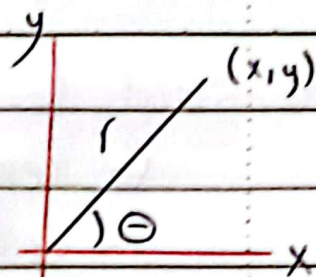 y
(x,y)
r
θ
x